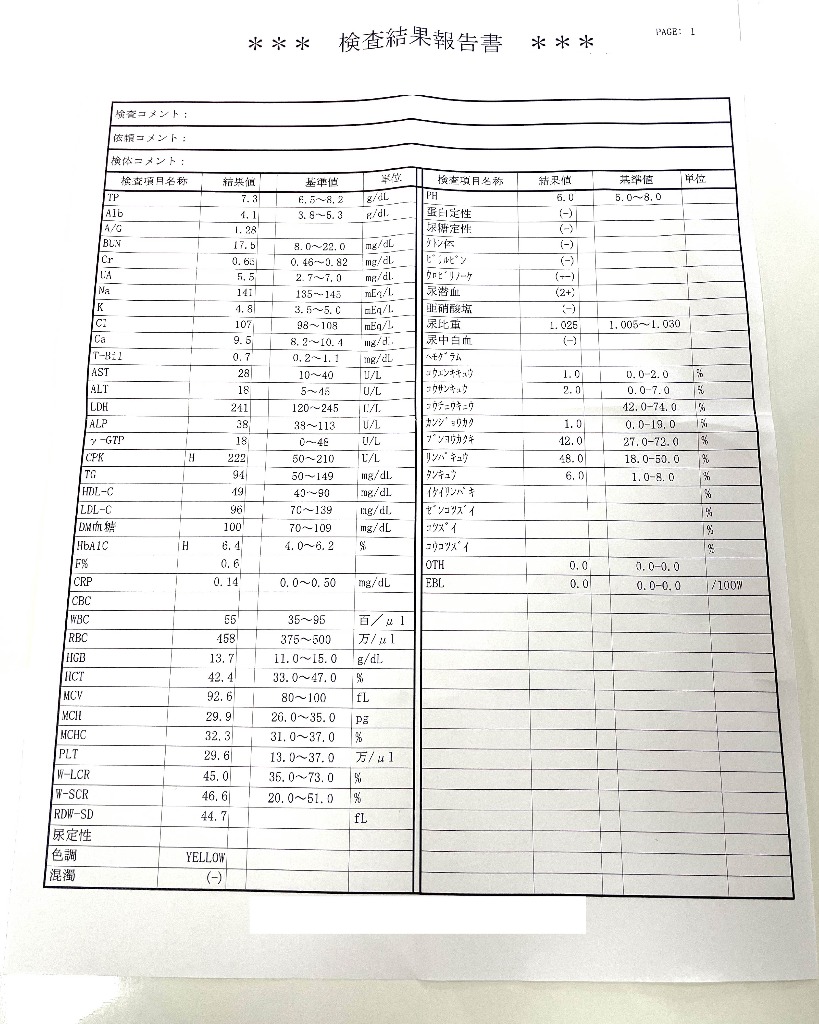 PAGE: 1
*** 検査結果報告書 ***
検査コメント：
依頼コメント：
検体コメント：
検査項目名称 結果値 基準値 単位
TP 7.3 6.5～8.2 g/dL
Alb 4.1 3.8～5.3 g/dL
A/G 1.28
BUN 17.5 8.0～22.0 mg/dL
Cr 0.65 0.46～0.82 mg/dL
UA 5.5 2.7～7.0 mg/dL
Na 141 135～145 mEq/L
K 4.8 3.5～5.0 mEq/L
Cl 107 98～108 mEq/L
Ca 9.5 8.2～10.4 mg/dL
T-Bil 0.7 0.2～1.1 mg/dL
AST 28 10～40 U/L
ALT 18 5～45 U/L
LDH 241 120～245 U/L
ALP 38 38～113 U/L
γ-GTP 18 0～48 U/L
CPK H 222 50～210 U/L
TG 94 50～149 mg/dL
HDL-C 49 40～90 mg/dL
LDL-C 96 70～139 mg/dL
DM血糖 100 70～109 mg/dL
HbA1C H 6.4 4.0～6.2 %
F% 0.6
CRP 0.14 0.0～0.50 mg/dL
CBC
WBC 55 35～95 百／μl
RBC 458 375～500 万/μl
HGB 13.7 11.0～15.0 g/dL
HCT 42.4 33.0～47.0 %
MCV 92.6 80～100 fL
MCH 29.9 26.0～35.0 pg
MCHC 32.3 31.0～37.0 %
PLT 29.6 13.0～37.0 万/μl
W-LCR 45.0 35.0～73.0 %
W-SCR 46.6 20.0～51.0 %
RDW-SD 44.7 fL
尿定性
色調 YELLOW
混濁 (-)
検査項目名称 結果値 基準値 単位
PH 6.0 5.0～8.0
蛋白定性 (-)
尿糖定性 (-)
ｹﾄﾝ体 (-)
ﾋﾞﾘﾙﾋﾞﾝ (-)
ｳﾛﾋﾞﾘﾉｰｹﾞ (+-)
尿潜血 (2+)
亜硝酸塩 (-)
尿比重 1.025 1.005～1.030
尿中白血 (-)
ﾍﾓｸﾞﾗﾑ
ｺｳｴﾝｷｷｭｳ 1.0 0.0-2.0 %
ｺｳｻﾝｷｭｳ 2.0 0.0-7.0 %
ｺｳﾁｭｳｷｭｳ 42.0-74.0 %
ｶﾝｼﾞｮｳｶｸ 1.0 0.0-19.0 %
ﾌﾞﾝﾖｳｶｸｷ 42.0 27.0-72.0 %
ﾘﾝﾊﾟｷｭｳ 48.0 18.0-50.0 %
ﾀﾝｷｭｳ 6.0 1.0-8.0 %
ｲｹｲﾘﾝﾊﾟｷ %
ｾﾞﾝｺﾂｽﾞｲ %
ｺﾂｽﾞｲ %
ｺｳｺﾂｽﾞｲ %
OTH 0.0 0.0-0.0
EBL 0.0 0.0-0.0 /100W